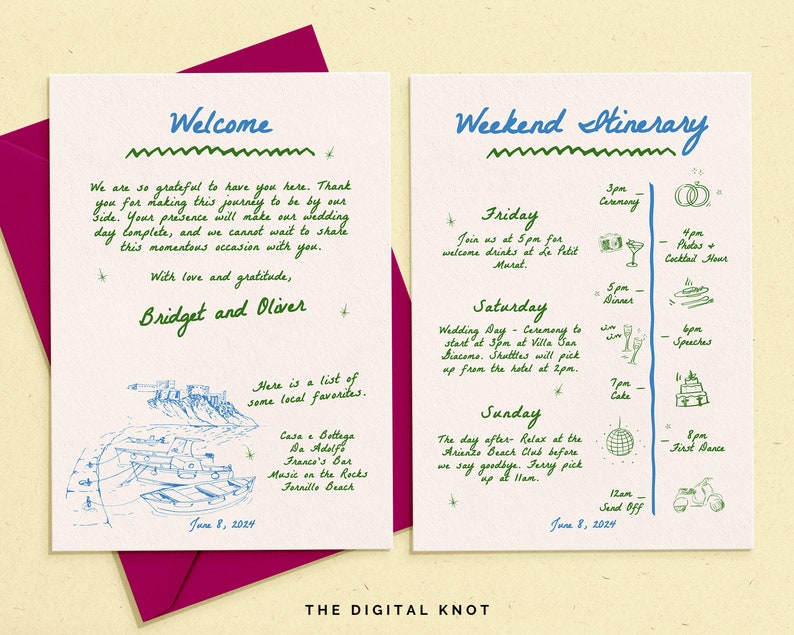 Welcome
We are so grateful to have you here. Thank
you for making this journey to be by our
side. Your presence will make our wedding
day complete, and we cannot wait to share
this momentous occasion with you.
With love and gratitude,
Bridget and Oliver
Here is a list of
some local favorites.
Casa e Bottega
Da Adolfo
Franco's Bar
Music on the Rocks
Fornillo Beach
June 8, 2024
Weekend Itinerary
Friday
Join us at 5pm for
welcome drinks at Le Petit
Murat.
Saturday
Wedding Day - Ceremony to
start at 3pm at Villa San
Giacomo. Shuttles will pick
up from the hotel at 2pm.
Sunday
The day after- Relax at the
Arienzo Beach Club before
we say goodbye. Ferry pick
up at 11am.
3pm
Ceremony
4pm
Photos &
Cocktail Hour
5pm
Dinner
6pm
Speeches
7pm
Cake
8pm
First Dance
12am
Send Off
June 8, 2024
THE DIGITAL KNOT